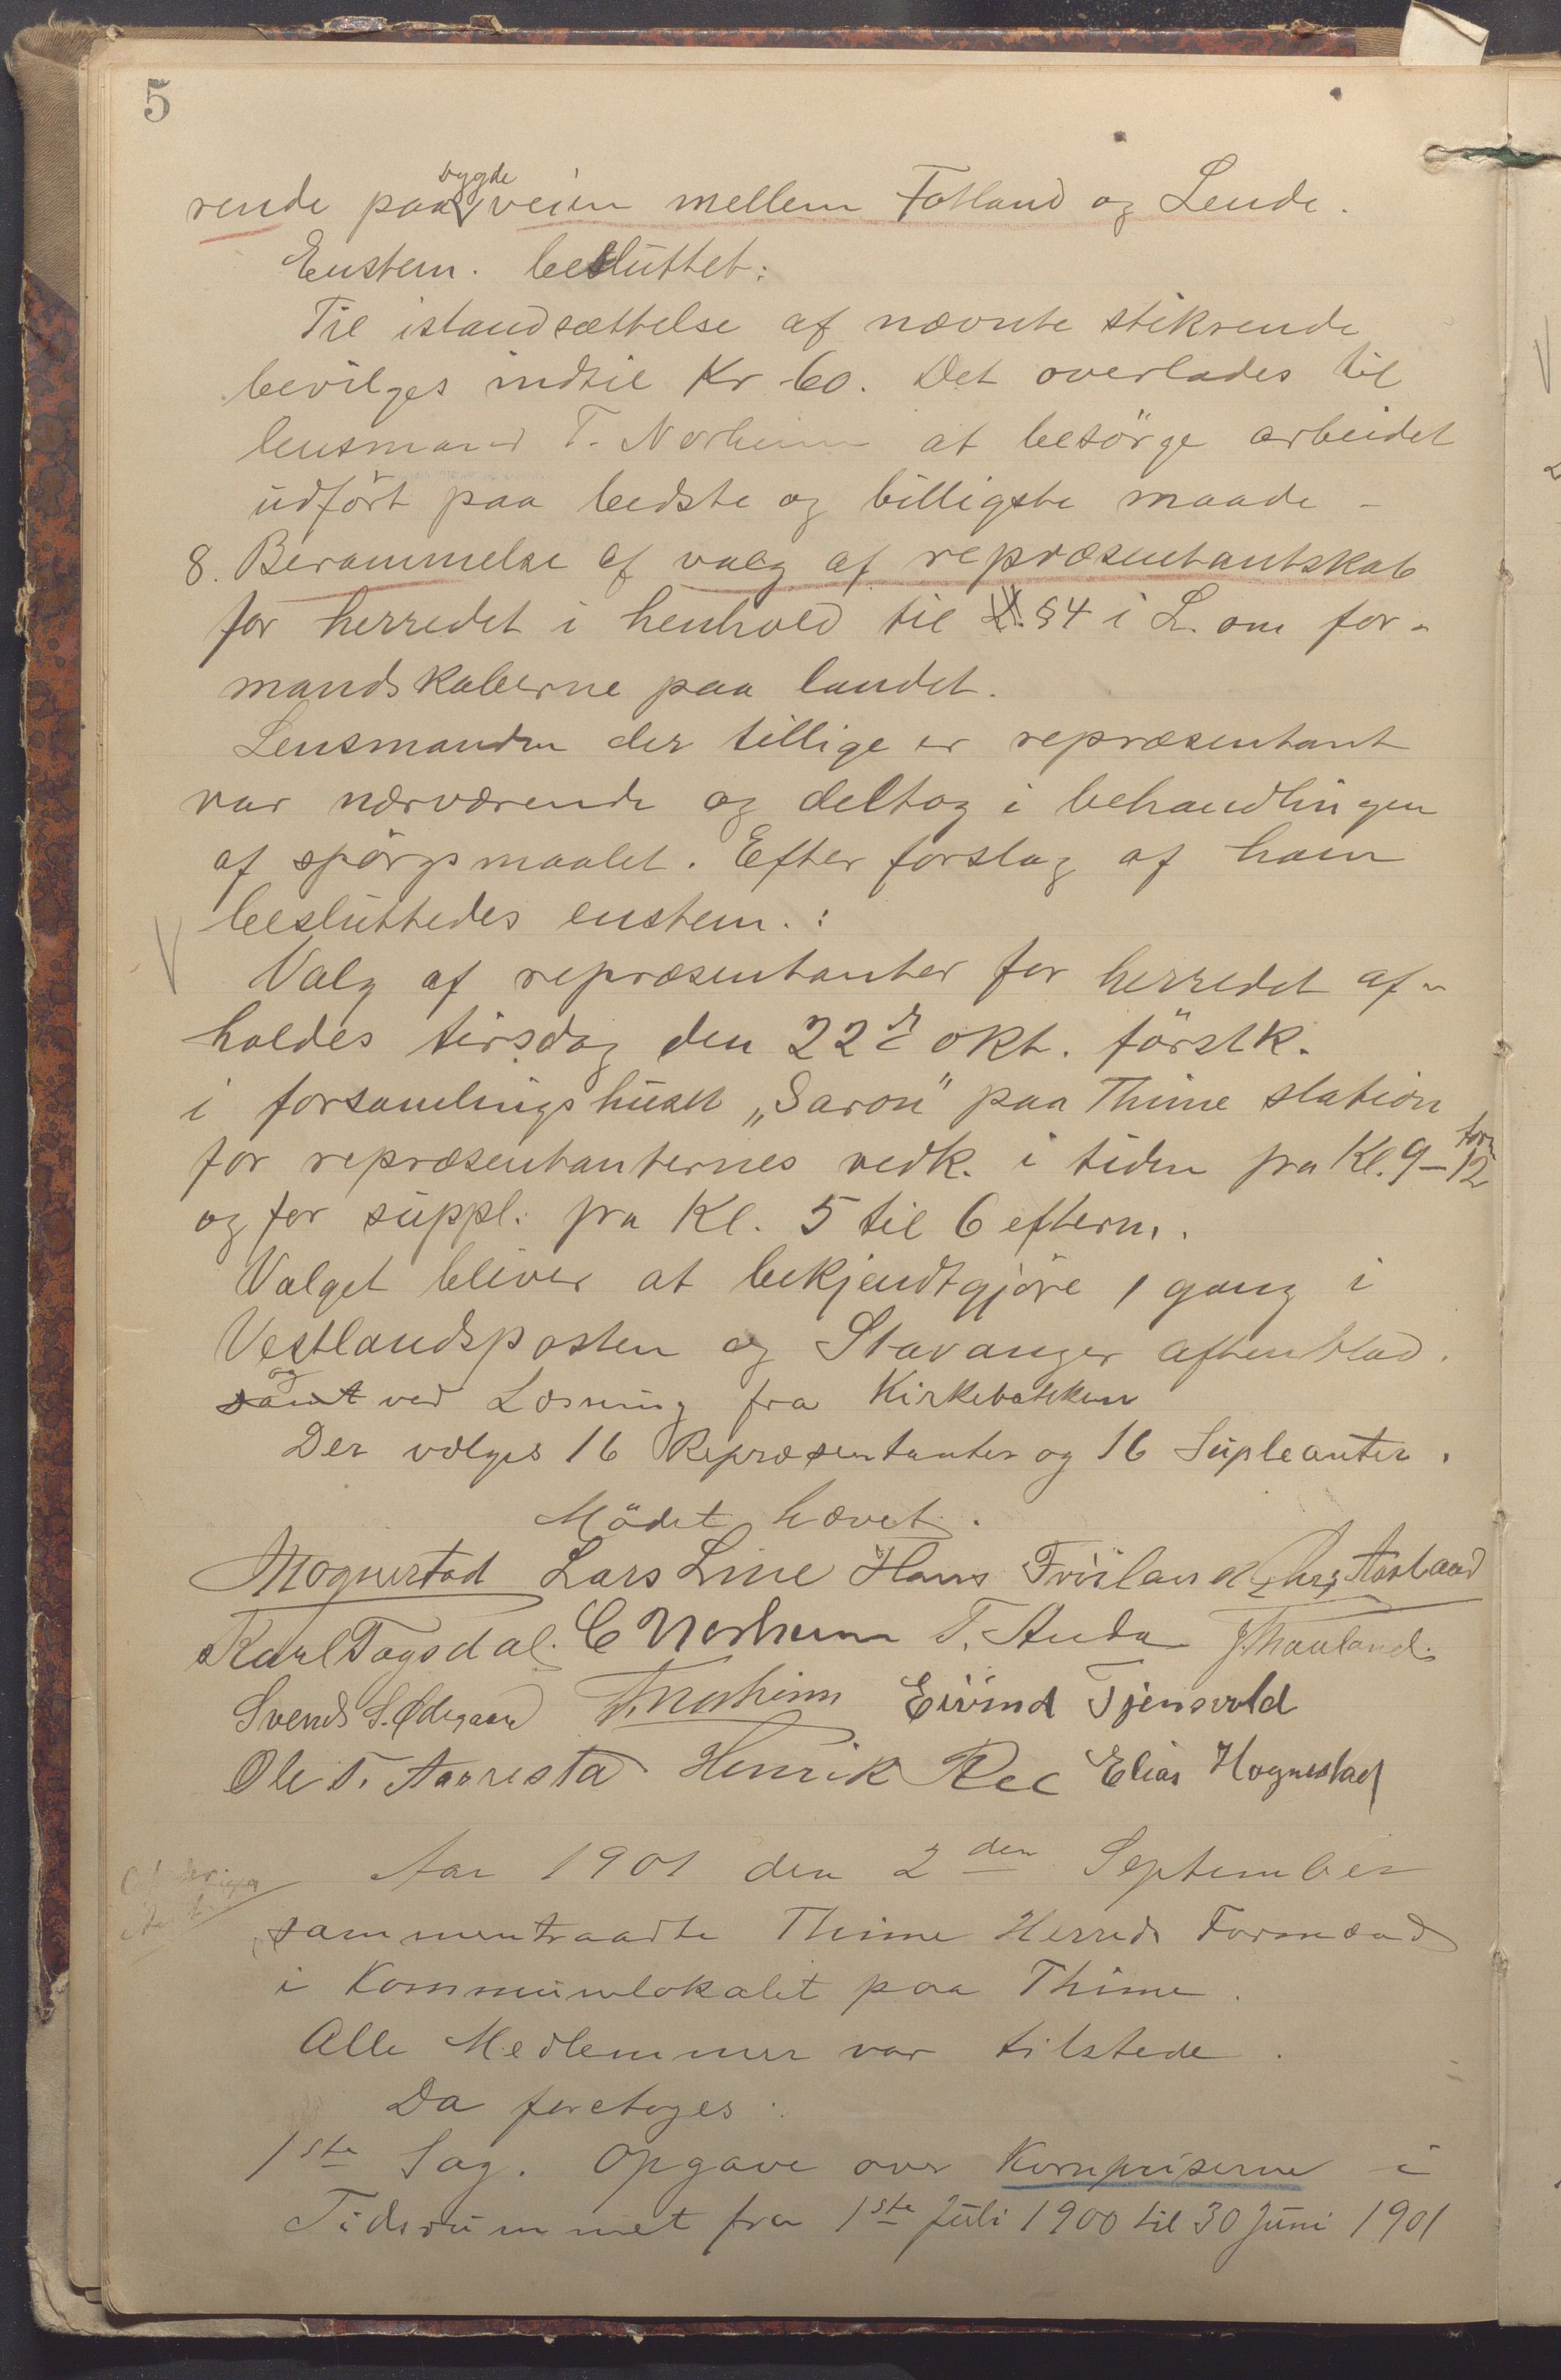 5
rende paa bygdeveien mellem Fotland og Lende.
Enstem. besluttet:
Til istandsættelse af nævnte stikrende
bevilges indtil Kr 60. Det overlades til
lensmand T. Norheim at besörge arbeidet
udfört paa bedste og billigste maade -
8. Berammelse af valg af repræsentantskab
for herredet i henhold til § 4 i L. om for-
mandskaberne paa landet.
Lensmanden der tillige er repræsentant
var nærværende og deltog i behandlingen
af spörgsmaalet. Efter forslag af ham
besluttedes enstem.:
Valg af repræsentanter for herredet af-
holdes tirsdag den 22de okt. förstk.
i forsamlingshuset „Saron" paa Thime station
for repræsentanternes vedk. i tiden fra Kl. 9-12 form
og for suppl. fra Kl. 5 til 6 efterm.
Valget bliver at bekjendtgjöre 1 gang i
Vestlandsposten og Stavanger aftenblad.
samt og ved Læsning fra Kirkebakken
Der vælges 16 Repræsentanter og 16 Supleanter.
Mödet hævet.
MHognestad Lars Line Hans Fröiland Chr. Aasland
Karl Tagsdal. C Norheim T. Auda J. Thauland.
Svend S. Ødegaard T. Norheim Eivind Tjensvold
Ole T. Aarrestad Henrik Ree Elias Hognestad
Aar 1901 den 2den September
sammentraadte Thime Herreds Formænd
i Kommunelokalet paa Thime.
Alle Medlemmer var tilstede.
Da foretoges:
1ste Sag. Opgave over Kornpriserne i
Tidsrummet fra 1ste Juli 1900 til 30 Juni 1901